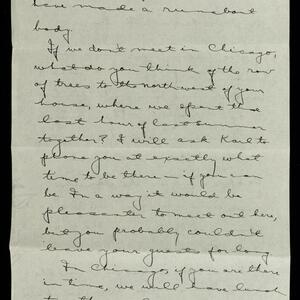 have made a runabout
body.
If we don't meet in Chicago,
what do you think of the row
of trees to the northwest of your
house, where we spent the
last hour of last summer
together? I will ask Karl to
phone you at exactly what
time to be there – if you can
be. In a way it would be
pleasanter to meet out here,
but you probably couldn't
leave your guests for long
In Chicago, if you are there
in time, we will have lunch